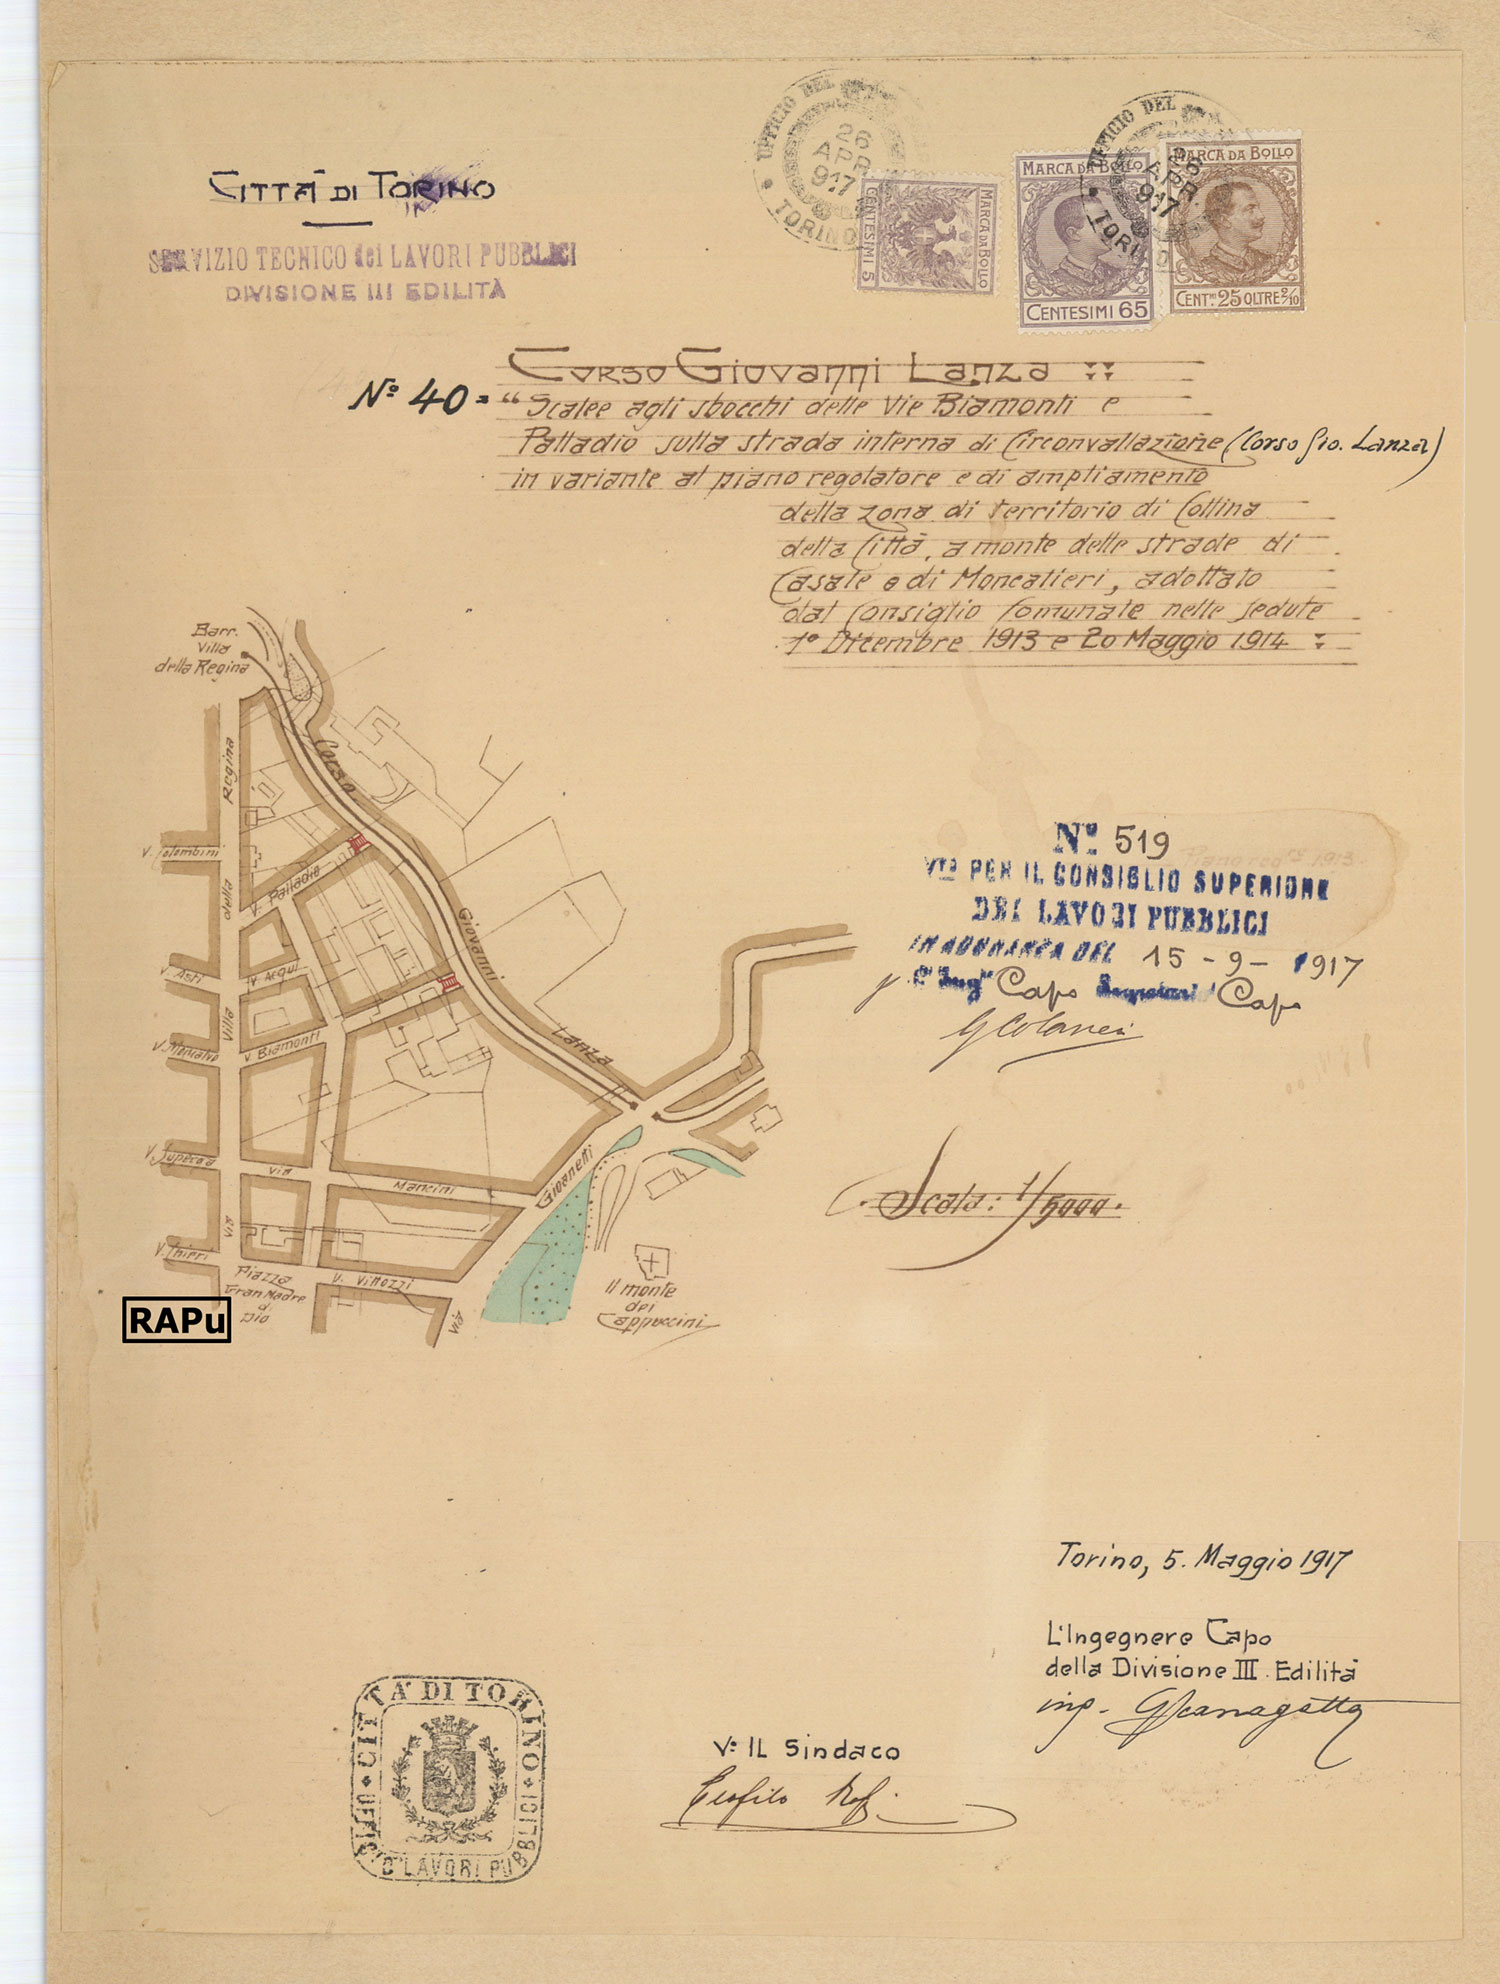 CITTÀ DI TORINO
SERVIZIO TECNICO dei LAVORI PUBBLICI
DIVISIONE III EDILITÀ
UFFICIO DEL
26
APR.
917
TORINO
MARCA DA BOLLO
CENTESIMI 5
MARCA DA BOLLO
CENTESIMI 65
UFFICIO DEL
26
APR.
917
TORINO
MARCA DA BOLLO
CENT.MI 25 OLTRE 2/10
CORSO GIOVANNI LANZA
No. 40 = "Scalee agli sbocchi delle Vie Biamonti e
Palladio sulla strada interna di Circonvallazione (Corso Gio. Lanza)
in variante al piano regolatore e di ampliamento
della zona di territorio di Collina
della Città, a monte delle strade di
Casale e di Moncalieri, adottato
dal Consiglio Comunale nelle sedute
1° Dicembre 1913 e 20 Maggio 1914
Barr.
Villa
della Regina
Corso
Giovanni
Lanza
Regina
della
Villa
via
V. Colombini
V. Palladio
V. Asti
V. Acqui
V. Moncalvo
V. Biamonti
V. Superga
via
Mancini
Gioanetti
V. Thieri
Piazza
Gran Madre
di
Dio
V. Vittozzi
via
Il monte
dei
Cappuccini
RAPu
No. 519
Vto PER IL CONSIGLIO SUPERIORE
DEI LAVORI PUBBLICI
IN ADUNANZA DEL 15-9-1917
Capo Capo
Scala: 1/5000.
Torino, 5. Maggio 1917
L'Ingegnere Capo
della Divisione III Edilità
ing. G Scanagatta
V° IL Sindaco
Teofilo Rossi
CITTÀ DI TORINO
UFFICIO LAVORI PUBBLICI